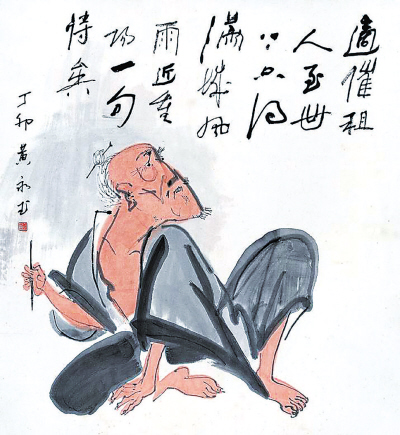 適催租
人至
得
滿城風
雨近重
陽一句
詩矣
丁卯黄永玉